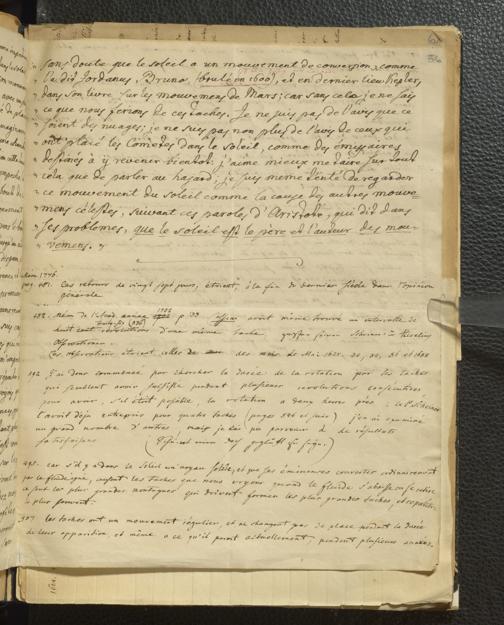 sans doute que le soleil a un mouvement de conversion, comme
" l'a dit Jordanus, Bruno, (brulé en 1600), et en dernier lieu Kepler,
" dans son livre, sur les mouvemens de Mars; car sans cela, je ne sais
" ce que nous ferions de ces taches. Je ne suis pas de l'avis que ce
" soient des nuages; je ne suis pas non plus de l'avis de ceux qui
" ont placé les Cometes dans le Soleil, comme des émissaires
" destinés à y revenir bientôt; j'aime mieux me taire sur tout
" cela que de parler au hasard; je suis même tenté de regarder
" ce mouvement du soleil comme la cause des autres mouve=
" mens célestes, suivant ces paroles d'Aristote, qui dit dans
" ses problêmes, que le soleil est le père et l'auteur des mou-
" vemens. "
Mém 1776.
pag. 481. Ces retours de vingt sept jours, étoient, à la fin du dernier siècle dans l'opinion
générale
482. Mém de l'Acad. année 1702 p. 133 avoit même trouvé un intervalle de
huit cent révolutions d'une même tache
observations.
Ces observations étoient celles de des mois de Mai 1625.
492 J'ai donc commencé par chercher la durée de la rotation par les taches
qui peuvent avoir subsisté pendant plusieurs révolutions consécutives
pour avoir, s'il étoit possible, la rotation a deux heures près:
l'avoit déja entrepris pour quatre taches (pages 526 et suiv.) j'en ai examiné
un grand nombre d'autres, mais je n'ai pu parvenir à de résultats
satisfaisans
495. car s'il y a dans le Soleil un noyau solide, et que ses éminences couvertes ordinairement
par le fluide igné, causent les taches que nous voyons quand le fluide s'abaisse ou se retire,
ce sont les plus grandes montagnes qui doivent former les plus grandes taches, et reparoître
le plus souvent.
507. les taches ont un mouvement régulier, et ne changent pas de place pendant la durée
de leur apparition, et même a ce qu'il paroit actuellement, pendant plusieurs années.